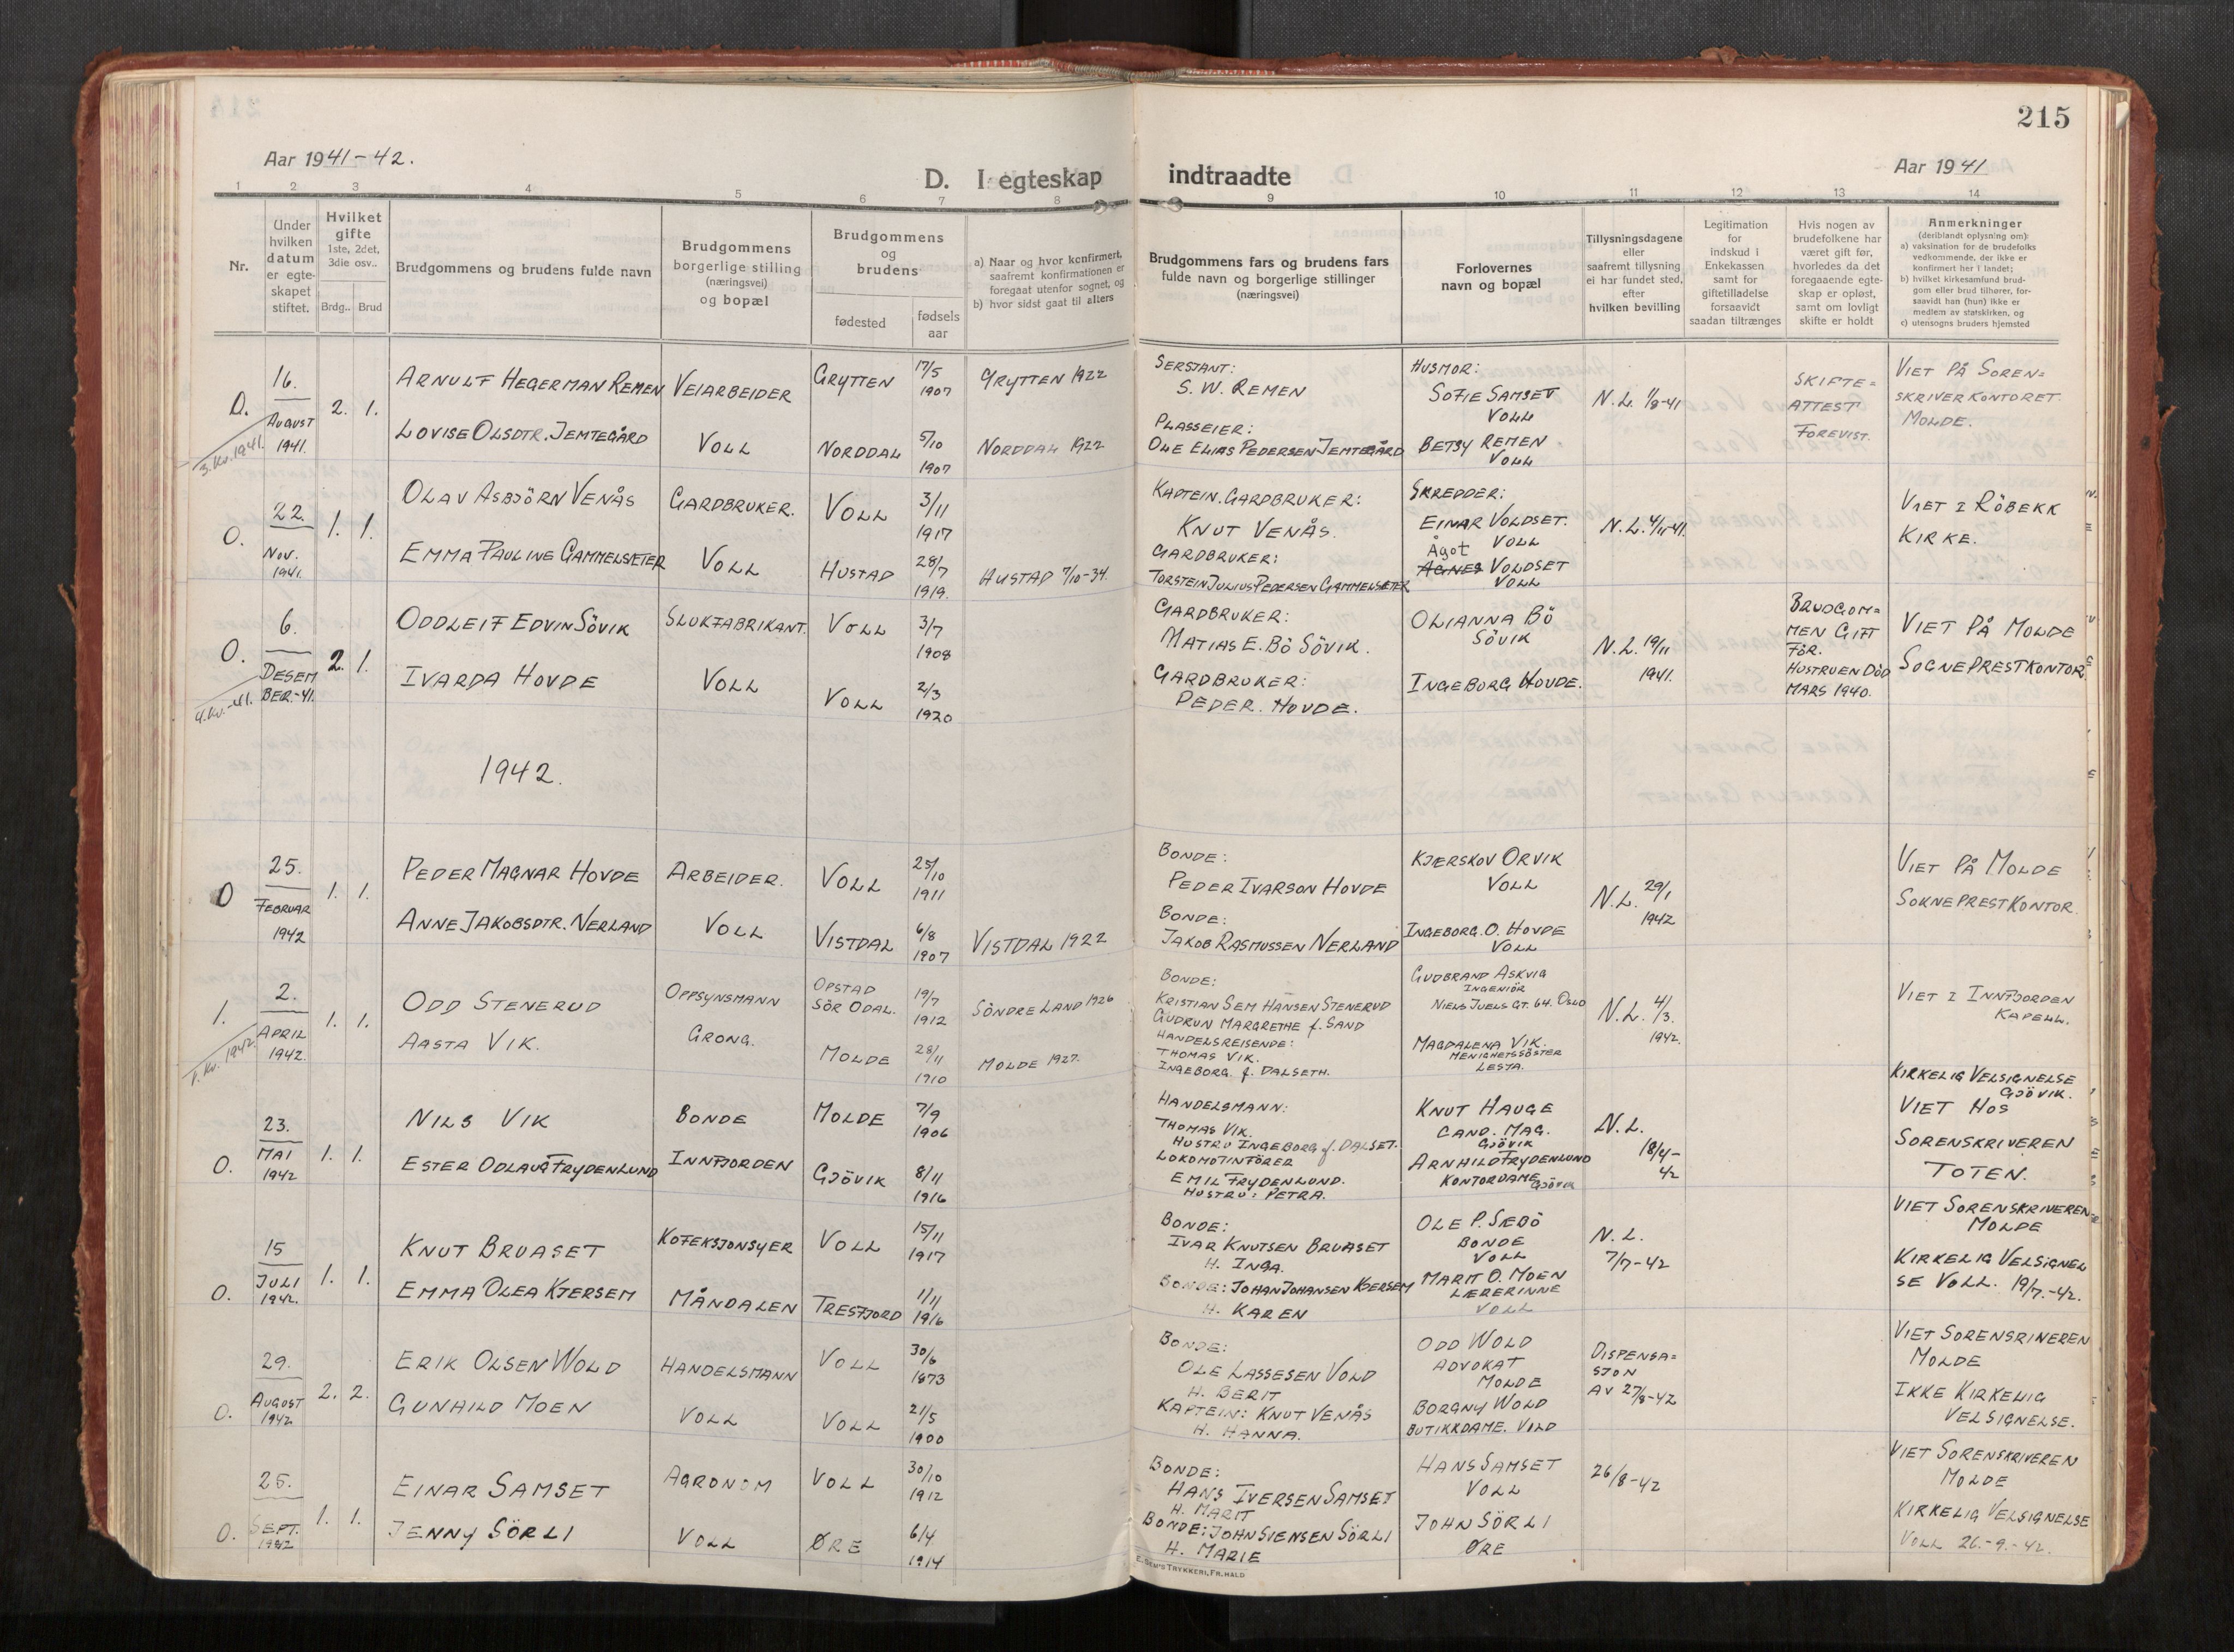 215
Aar 1941-42.
D. I egteskap indtraadte
Aar 1941
1 2 3 4 5 6 7 8 9 10 11 12 13 14
Nr.
Under hvilken datum er egteskapet stiftet.
Hvilket gifte
1ste, 2det, 3die osv..
Brdg.. Brud
Brudgommens og brudens fulde navn
Brudgommens borgerlige stilling (næringsvei) og bopæl
Brudgommens og brudens
fødested
fødsels aar
a) Naar og hvor konfirmert, saafremt konfirmationen er foregaat utenfor sognet, og
b) hvor sidst gaat til alters
Brudgommens fars og brudens fars fulde navn og borgerlige stillinger (næringsvei)
Forlovernes navn og bopæl
Tillysningsdagene eller saafremt tillysning ei har fundet sted, efter hvilken bevilling
Legitimation for indskud i Enkekassen samt for giftetilladelse forsaavidt saadan tiltrænges
Hvis nogen av brudefolkene har været gift før, hvorledes da det foregaaende egteskap er opløst, samt om lovligt skifte er holdt
Anmerkninger
(deriblandt oplysning om)
a) vaksination for de brudefolks vedkommende, der ikke er konfirmert her i landet;
b) hvilket kirkesamfund brudgom eller brud tilhører, forsaavidt han (hun) ikke er medlem av statskirken, og
c) utensogns bruders hjemsted
O.
3. Kv. 1941.
16.
August
1941.
2. 1.
Arnulf Hegerman Remen
Lovise Olsdtr. Jemtegård
Veiarbeider
Voll
Grytten 17/5 1907
Norddal 5/10 1907
Grytten 1922
Norddal 1922
Sersjant:
S. W. Remen
Plasseier:
Ole Elias Pedersen Jemtegård
Husmor:
Sofie Samset
Voll
Betsy Remen
Voll
N. L. 1/8-41
Skifte=
attest
forevist.
Viet på Soren=
skriverkontoret
Molde.
O.
22.
Nov.
1941.
1. 1.
Olav Asbjörn Venås
Emma Pauline Gammelsæter
Gardbruker.
Voll
Voll 3/11 1917
Hustad 28/7 1919.
Hustad 7/10-34.
Kaptein. Gardbruker:
Knut Venås.
Gardbruker:
Torstein Julius Pedersen Gammelsæter
Skredder:
Einar Voldset.
Voll
Ågot
Agnes Voldset
Voll
N. L. 4/11-41.
Viet i Röbekk
Kirke.
O.
4. Kv.-41.
6.
Desem
ber-41.
2. 1.
Oddleif Edvin Sövik
Ivarda Hovde
Slukfabrikant.
Voll
Voll 3/7 1908
Voll 2/3 1920
Gardbruker:
Matias E. Bö Sövik.
Gardbruker:
Peder. Hovde.
Olianna Bö
Sövik
Ingeborg Hovde.
N. L. 19/11
1941.
Brudgom=
men gift
för.
Hustruen död
mars 1940.
Viet på Molde
Sogneprestkontor.
1942.
O
25.
Februar
1942
1. 1.
Peder Magnar Hovde
Anne Jakobsdtr. Nerland
Arbeider.
Voll
Voll 25/10 1911
Vistdal 6/8 1907
Vistdal 1922
Bonde:
Peder Ivarson Hovde
Bonde:
Jakob Rasmussen Nerland
Kjerskov Orvik
Voll
Ingeborg. O. Hovde
Voll
N. L. 29/1
1942
Viet på Molde
Sokneprestkontor.
1.
1. Kv. 1942.
2.
April
1942.
1. 1.
Odd Stenerud
Aasta Vik.
Oppsynsmann
Grong.
Opstad
Sör Odal. 19/7 1912
Molde 28/11 1910
Söndre Land 1926
Molde 1927.
Bonde:
Kristian Sem Hansen Stenerud
Gudrun Margrethe f. Sand
Handelsreisende:
Thomas Vik.
Ingeborg f. Dalseth.
Gudbrand Askvig
Ingeniör
Niels Juels gt. 64. Oslo
Magdalena Vik.
Menighetssöster
Lesja.
N. L. 4/3.
1942.
Viet i Innfjorden
Kapell.
O.
23.
Mai
1942
1. 1.
Nils Vik
Ester Odlaug Frydenlund
Bonde
Innfjorden
Molde 7/9 1906
Gjövik 8/11 1916
Handelsmann:
Thomas Vik.
Hustru Ingeborg f. Dalset.
Lokomotivförer
Emil Frydenlund.
Hustru: Petra.
Knut Hauge
Cand. Mag.
Gjövik
Arnhild Frydenlund
Kontordame Gjövik
N. L.
18/4-
42
Kirkelig velsignelse
Gjövik.
Viet hos
Sorenskriveren
Toten.
O.
15
Juli
1942.
1. 1.
Knut Bruaset
Emma Olea Kjersem
Kofeksjonsyer
Måndalen
Voll 15/11 1917
Tresfjord 1/11 1916
Bonde:
Ivar Knutsen Bruaset
H. Inga.
Bonde: Johan Johansen Kjersem
H. Karen
Ole P. Sæbö
Bonde
Voll
Marit O. Moen
Lærerinne
Voll
N. L.
7/7-42
Viet Sorenskriveren
Molde
Kirkelig velsignel
se Voll. 19/7.-42.
O.
29.
August
1942
2. 2.
Erik Olsen Wold
Gunhild Moen
Handelsmann
Voll
Voll 30/6 1873
Voll 21/5 1900
Bonde:
Ole Lassesen Vold
H. Berit
Kaptein: Knut Venås
H. Hanna.
Odd Wold
Advokat
Molde
Borgny Wold
Butikkdame. Vold
Dispensa=
sjon
av 27/8-42
Viet Sorensriveren
Molde
Ikke kirkelig
velsignelse.
O.
25.
Sept.
1942
1. 1.
Einar Samset
Jenny Sörli
Agronom
Voll
Voll 30/10 1912
Øre 6/4 1914
Bonde:
Hans Iversen Samset
H. Marit
Bonde: John Siensen Sörli
H. Marie
Hans Samset
Voll
John Sörli
Øre
26/8-42
Viet Sorenskriveren
Molde
Kirkelig velsignelse
Voll 26.-9.-42.
E. Sem's Trykkeri, Fr.hald